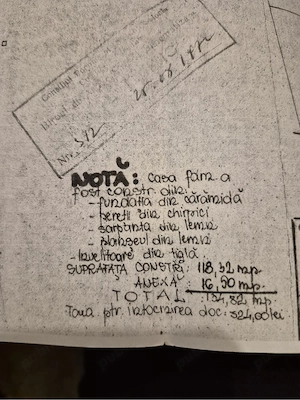 Nr. 312
20.08.1992
NOTĂ: Casa părz a
fost constr. din:
- fundatia din cărămidă
- pereti din chirpici
- sarpanta din lemn
- plafoseul din lemn
- învelitoare din tiglă
SUPRAFAȚA CONSTR.: 118,32 mp.
ANEXA: 16,50 mp.
TOTAL: 134,82 mp.
Taxa ptr. întocmirea doc: 324,00 lei